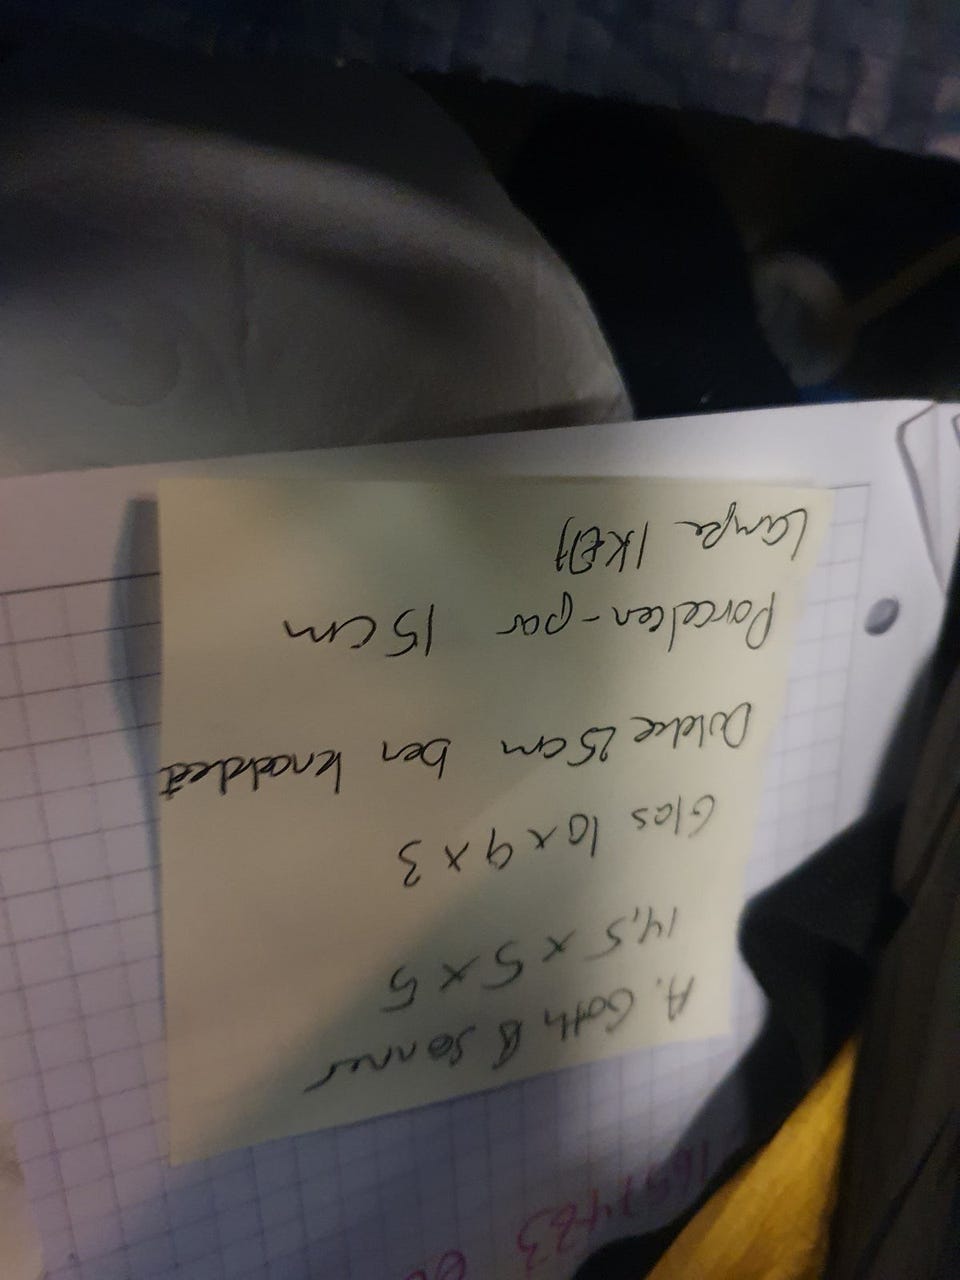 Lampe IKEA
Porcelen-par 15 cm
Dukke 25cm ben knækket
Glas 10 x 9 x 3
14,5 x 5 x 5
A. Goth & Sønner